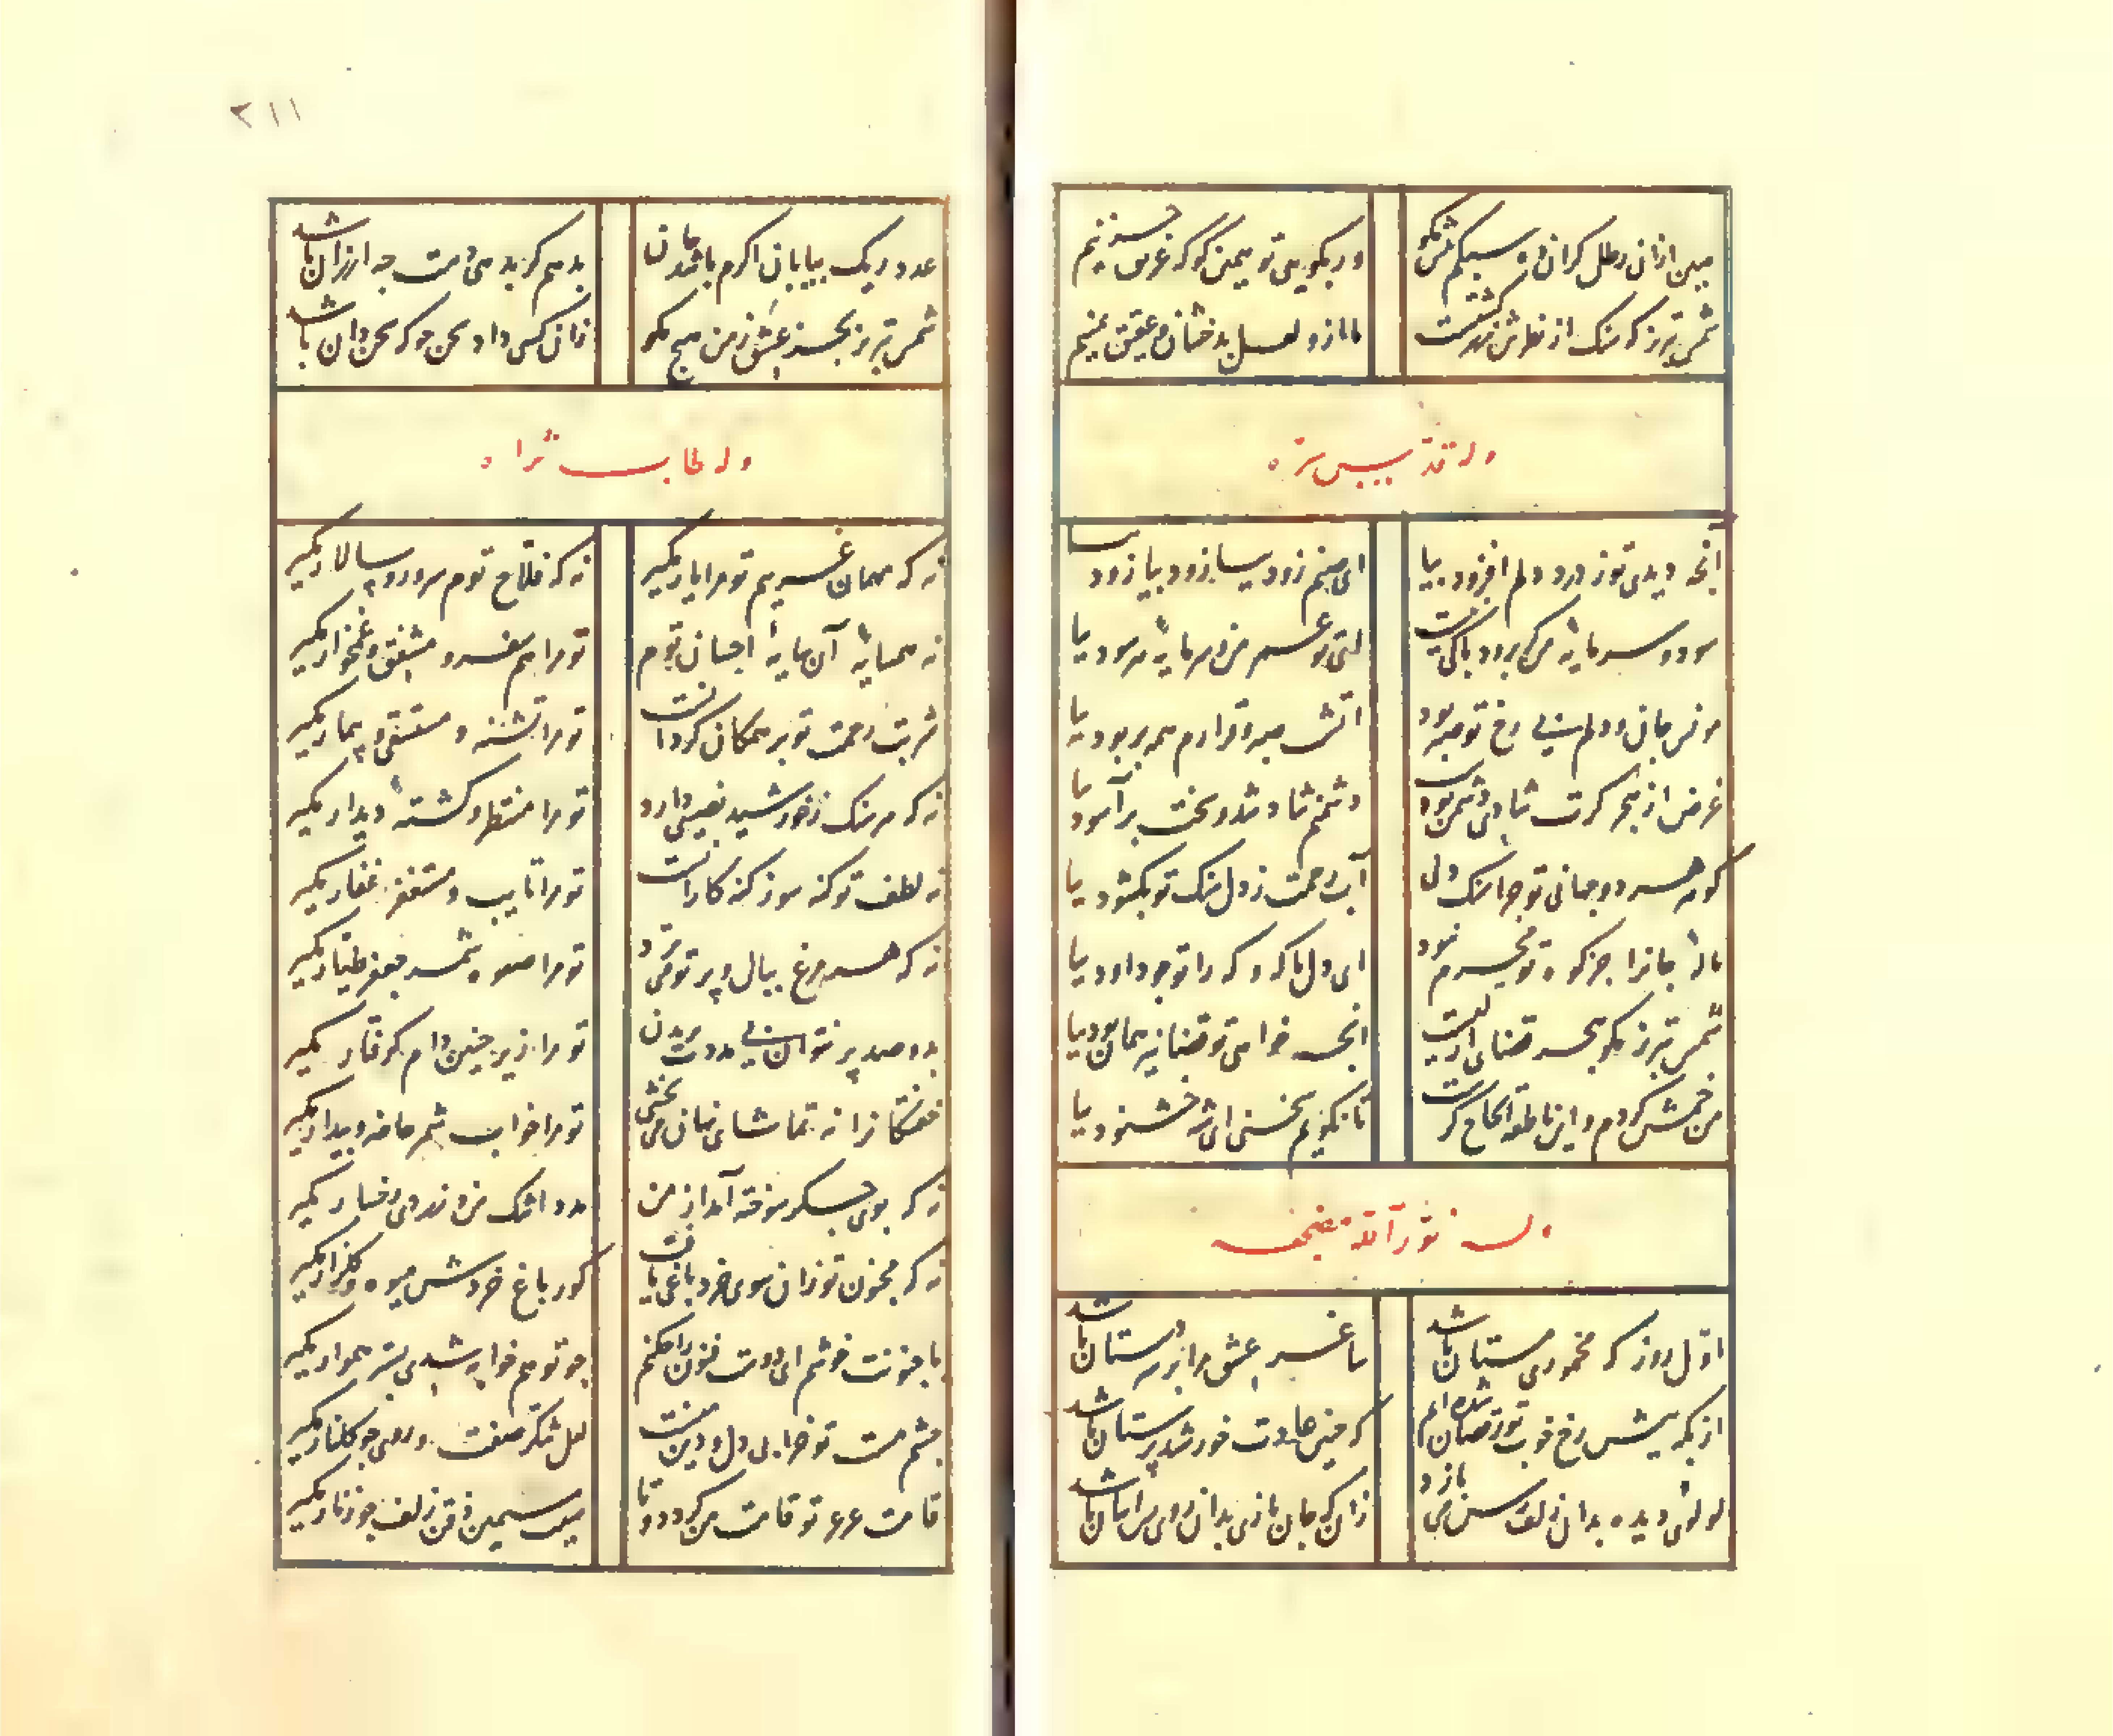 وله قدس سره
آنچه دیدی تو ز درد دلم افزود بیا
ای صنم زود بیا زود بیا زود بیا
سود و سرمایه من گر برود باکی نیست
ای تو عمر من و سرمایه هر سود بیا
مونس جان و دلم بی رخ تو صبر بود
آتشت صبر و قرارم همه بربود بیا
غرض از هجر گرت شادی دشمن بودست
دشمنم شاد شد و سخت برآسود بیا
گوهر هر دو جهانی تو چرا سنگ دلی
آب رحمت ز دل سنگ تو بگشود بیا
ناله جانرا جز کوه تو محرم نبود
ای دل باکه و که را تو چو داود بیا
شمس تبریز مگو هجر قضای ازلیست
آنچه خواهی تو قضا نیز همان بود بیا
من خمش کردم و این ناطقه الحاح گرست
تا نگویم سخنی ای شه خشنود بیا
وله نور الله مضجعه
اول روز که مخموری مستان باشد
ساغر عشق مرا بر سر دستان باشد
از پگه پیش رخ خوب تو رقصان شده‌ام
که چنین عادت خورشیدپرستان باشد
لولوی دیده بدان زلف رسن می‌بازد
زانکه جان بازی بدان روی
۲۱۱
عدد ریک بیابان اکرم باشد جان
بدهم گر بدهی دست چه ارزان باشد
شمس تبریز بجز عشق ز من هیچ مگو
زان کسی داد سخن جو که سخن‌دان باشد
وله طاب ثراه
نه که مهمان غریبم تو مرا یار مگیر
نه که فلاح توم سرور و سالار مگیر
نه که همسایه آن سایه احسان توم
تو مرا هم سفر و مشفق و غمخوار مگیر
شربت رحمت تو بر همگان گردانست
تو مرا تشنه و مستسقی و بیمار مگیر
نه که هر سنگ ز خورشید نصیبی دارد
تو مرا منتظر و کشته دیدار مگیر
نه که لطف تو گنه سوز گنه کارانست
تو مرا تایب و مستغفر غفار مگیر
نه که هر مرغ ببال و پر تو می‌پرد
تو مرا صعوه شمر جعفر طیار مگیر
بدو صد پر نتوان بی مددت پریدن
تو مرا زیر چنین دام گرفتار مگیر
خفتگانرا نه تماشای نهان می‌بخشی
تو مرا خواب شمر حاضر و بیدار مگیر
نه که بوی جگر سوخته آمد از من
مدد اشک من و زردی رخسار مگیر
نه که مجنون تو زان سوی خرد باغی یافت
کور باغ خردش میوه و گلزار مگیر
با جنونت خوشم ای دوست فنون را چکنم
چو تو همخوابه شدی بستر هموار مگیر
چشم مست تو خرابی دل و دین منست
لعل شکر صفت و روی چو گلنار مگیر
قامت عرعر تو قامت من کرد دوتا
سیب سیمین ذقن و زلف چو زنار مگیر